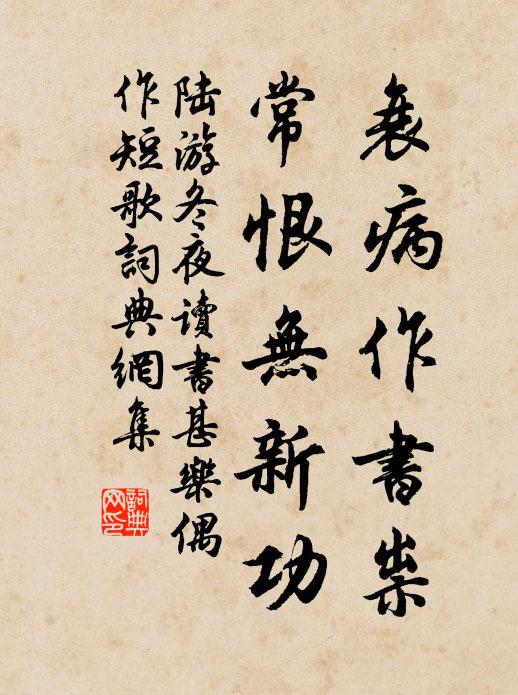 衰病作書祟
常恨無新功
陸游冬夜讀書甚樂偶
作短歌詞典網集
詞典
网印